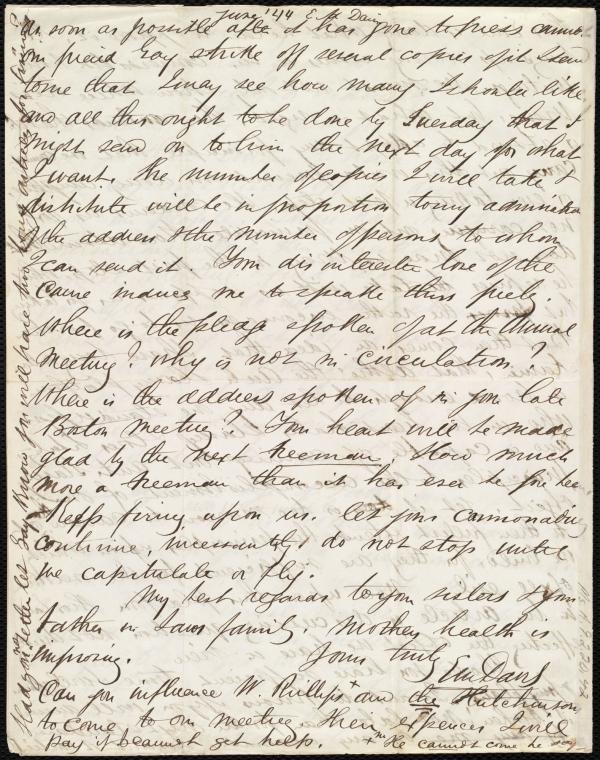 June '44 E. M. Davis
as soon as possible after it has gone to press cannot
our friend Gay strike off several copies of it & send
to me that I may see how many I should like
and all this ought to be done by Tuesday that I
might send on to him the next day for what
I want. The number of copies I will take &
distribute will be in proportion to my admiration
of the address & the number of persons to whom
I can send it. Your disinterested love of the
cause induces me to speak thus freely.
Where is the pledge spoken of at the Annual
Meeting? Why is not in circulation?
Where is the address spoken of in your late
Boston Meeting? Your heart will be made
glad by the next freeman. How much
more a freeman than it has ever been
Keep firing upon us. Let your cannonading
continue, incessantly do not stop until
we capitulate or fly.
My best regards to your sisters & your
Father in Laws family. Mothers health is
improving.
Yours truly E M Davis
Can you influence W. Phillips + and the Hutchinsons
to come to our meeting. Their expences I will
pay if I cannot get help. + He cannot come he says
let Gay know you will have two